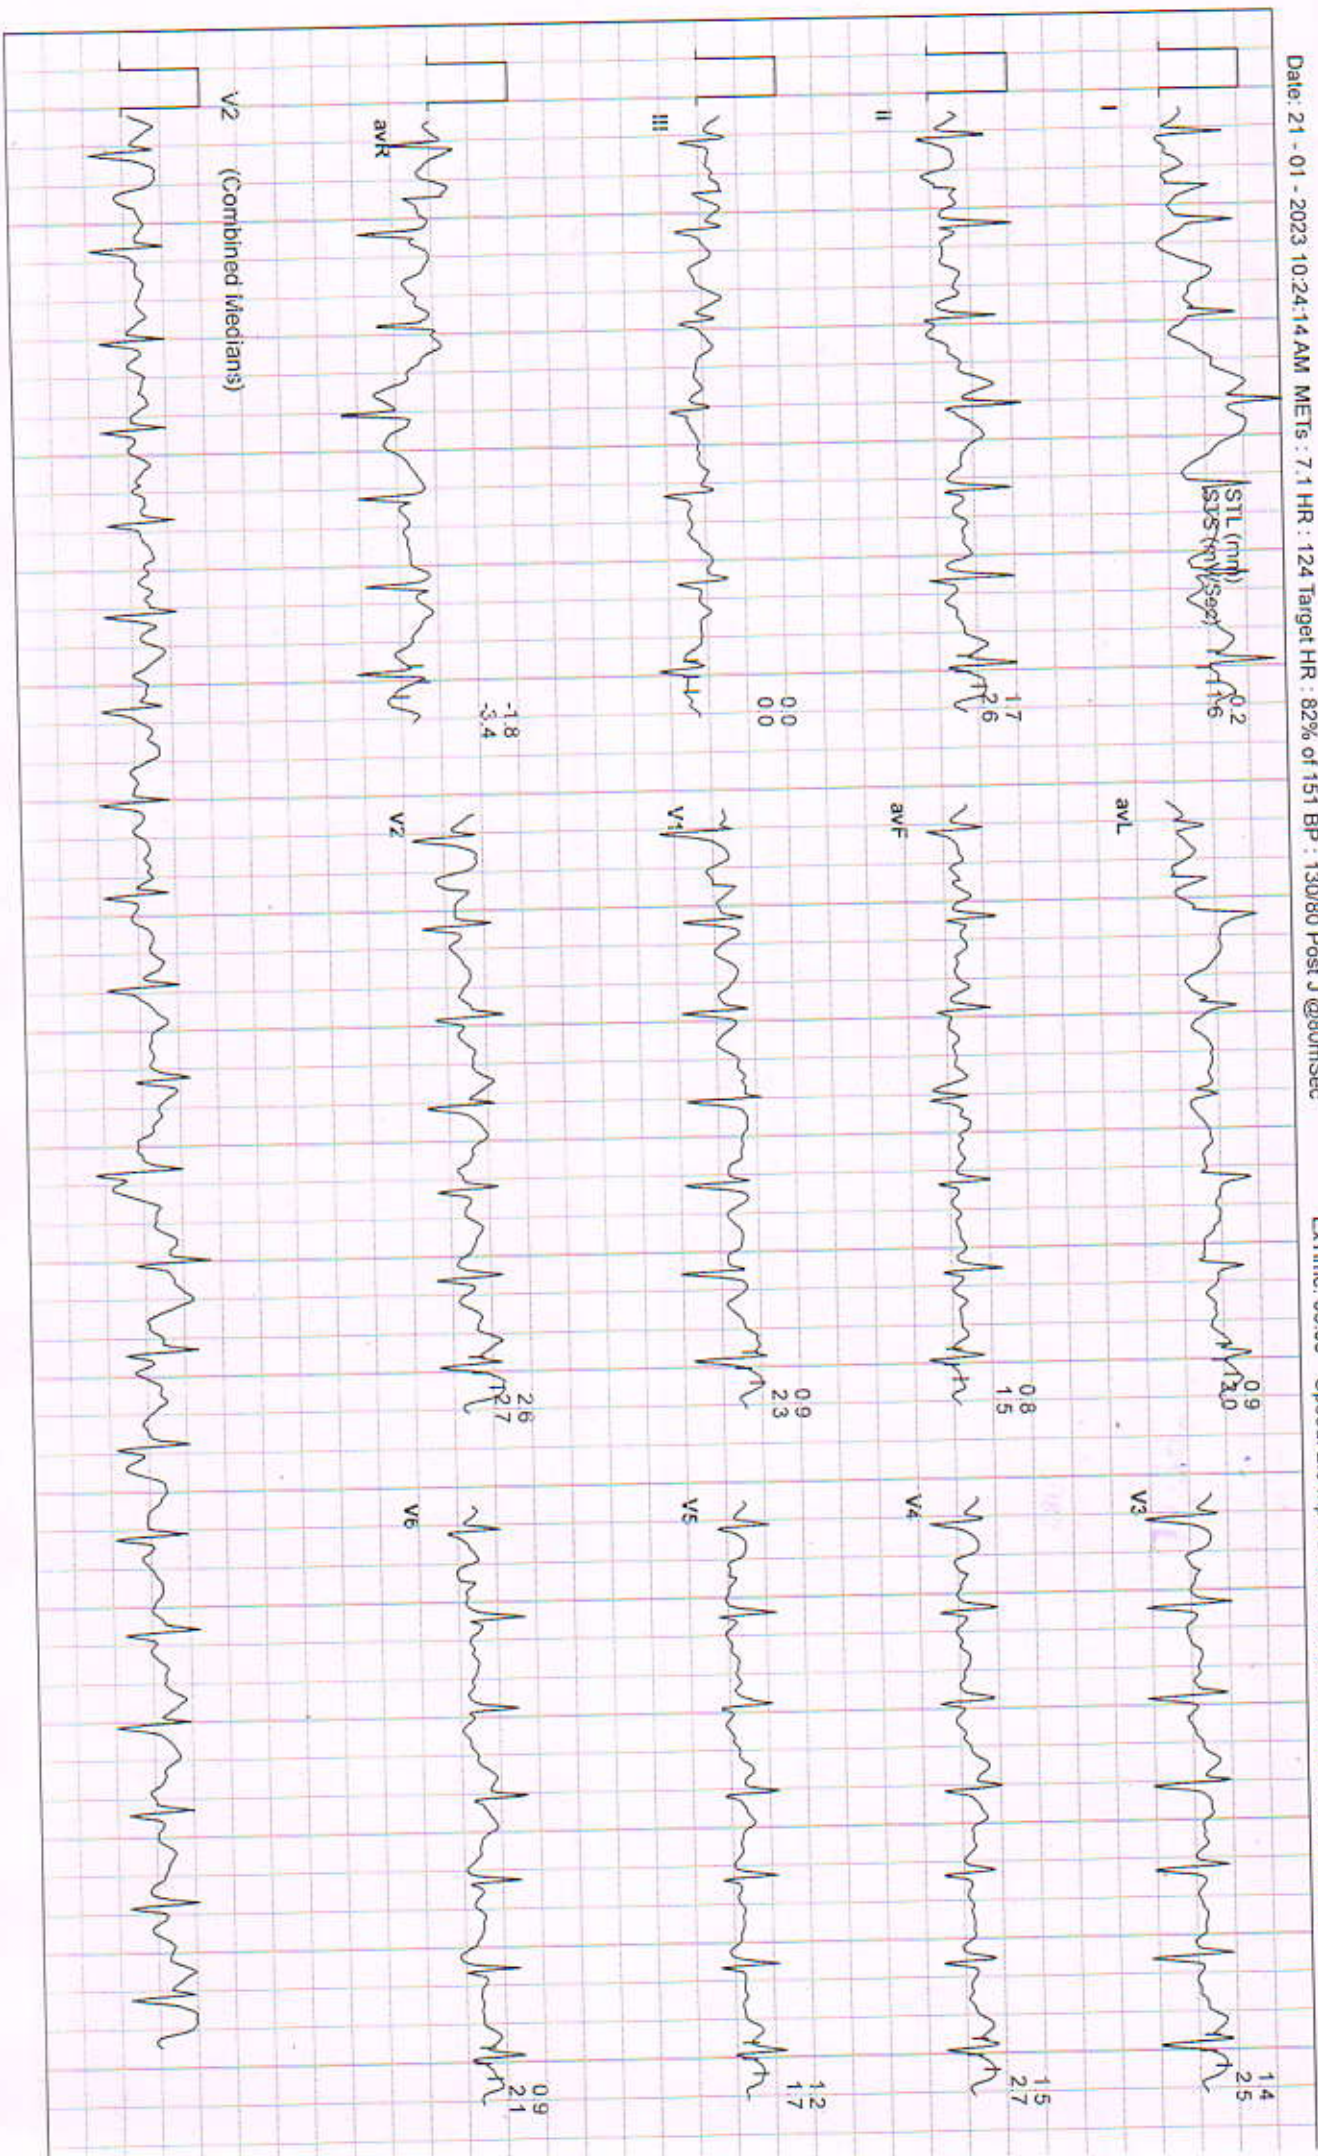 Date: 21 - 01 - 2023 10:24:14 AM METs : 7.1 HR : 124 Target HR : 82% of 151 BP : 130/80 Post J @80mSec
I
STL (mm)
STS (mV/Sec)
0.2
1.6
avL
0.9
V3
1.4
2.5
II
1.7
2.6
avF
0.8
1.5
V4
1.5
2.7
III
0.0
0.0
V1
0.9
2.3
V5
1.2
1.7
avR
-1.8
-3.4
V2
2.6
2.7
V6
0.9
2.1
V2 (Combined Medians)